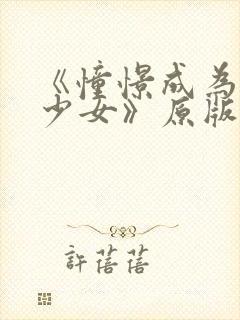 《憧憬成为
少女》原版
許蓓蓓